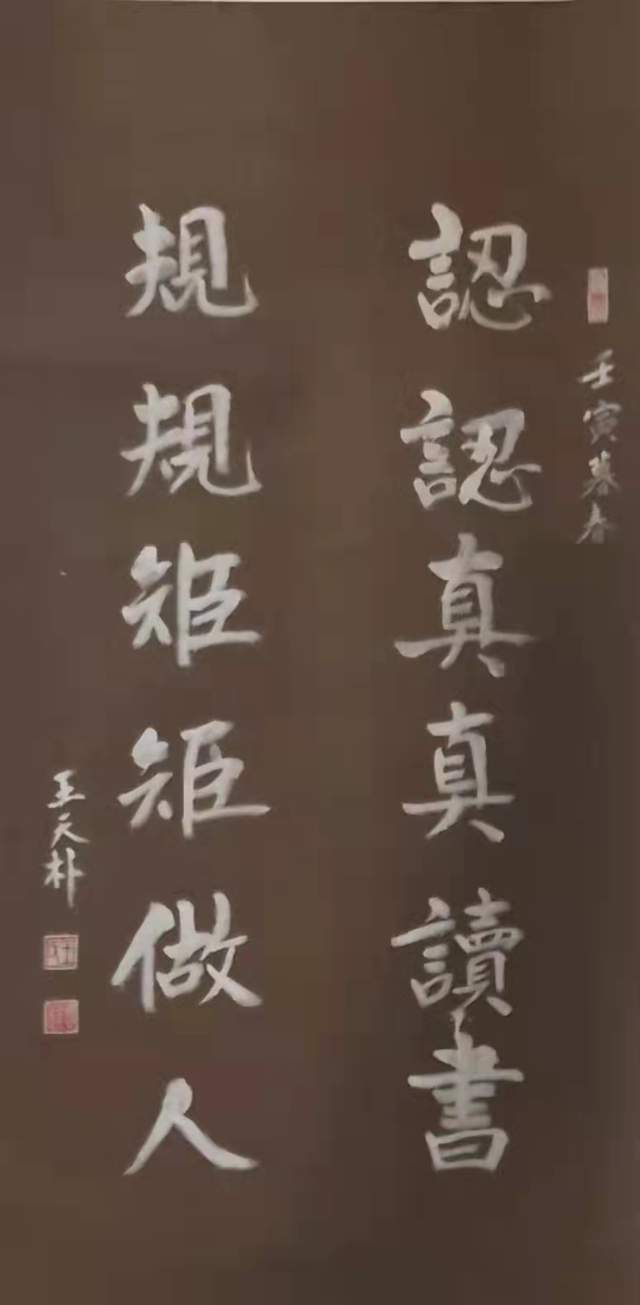 壬寅暮春
認認真真讀書
規規矩矩做人
王天朴